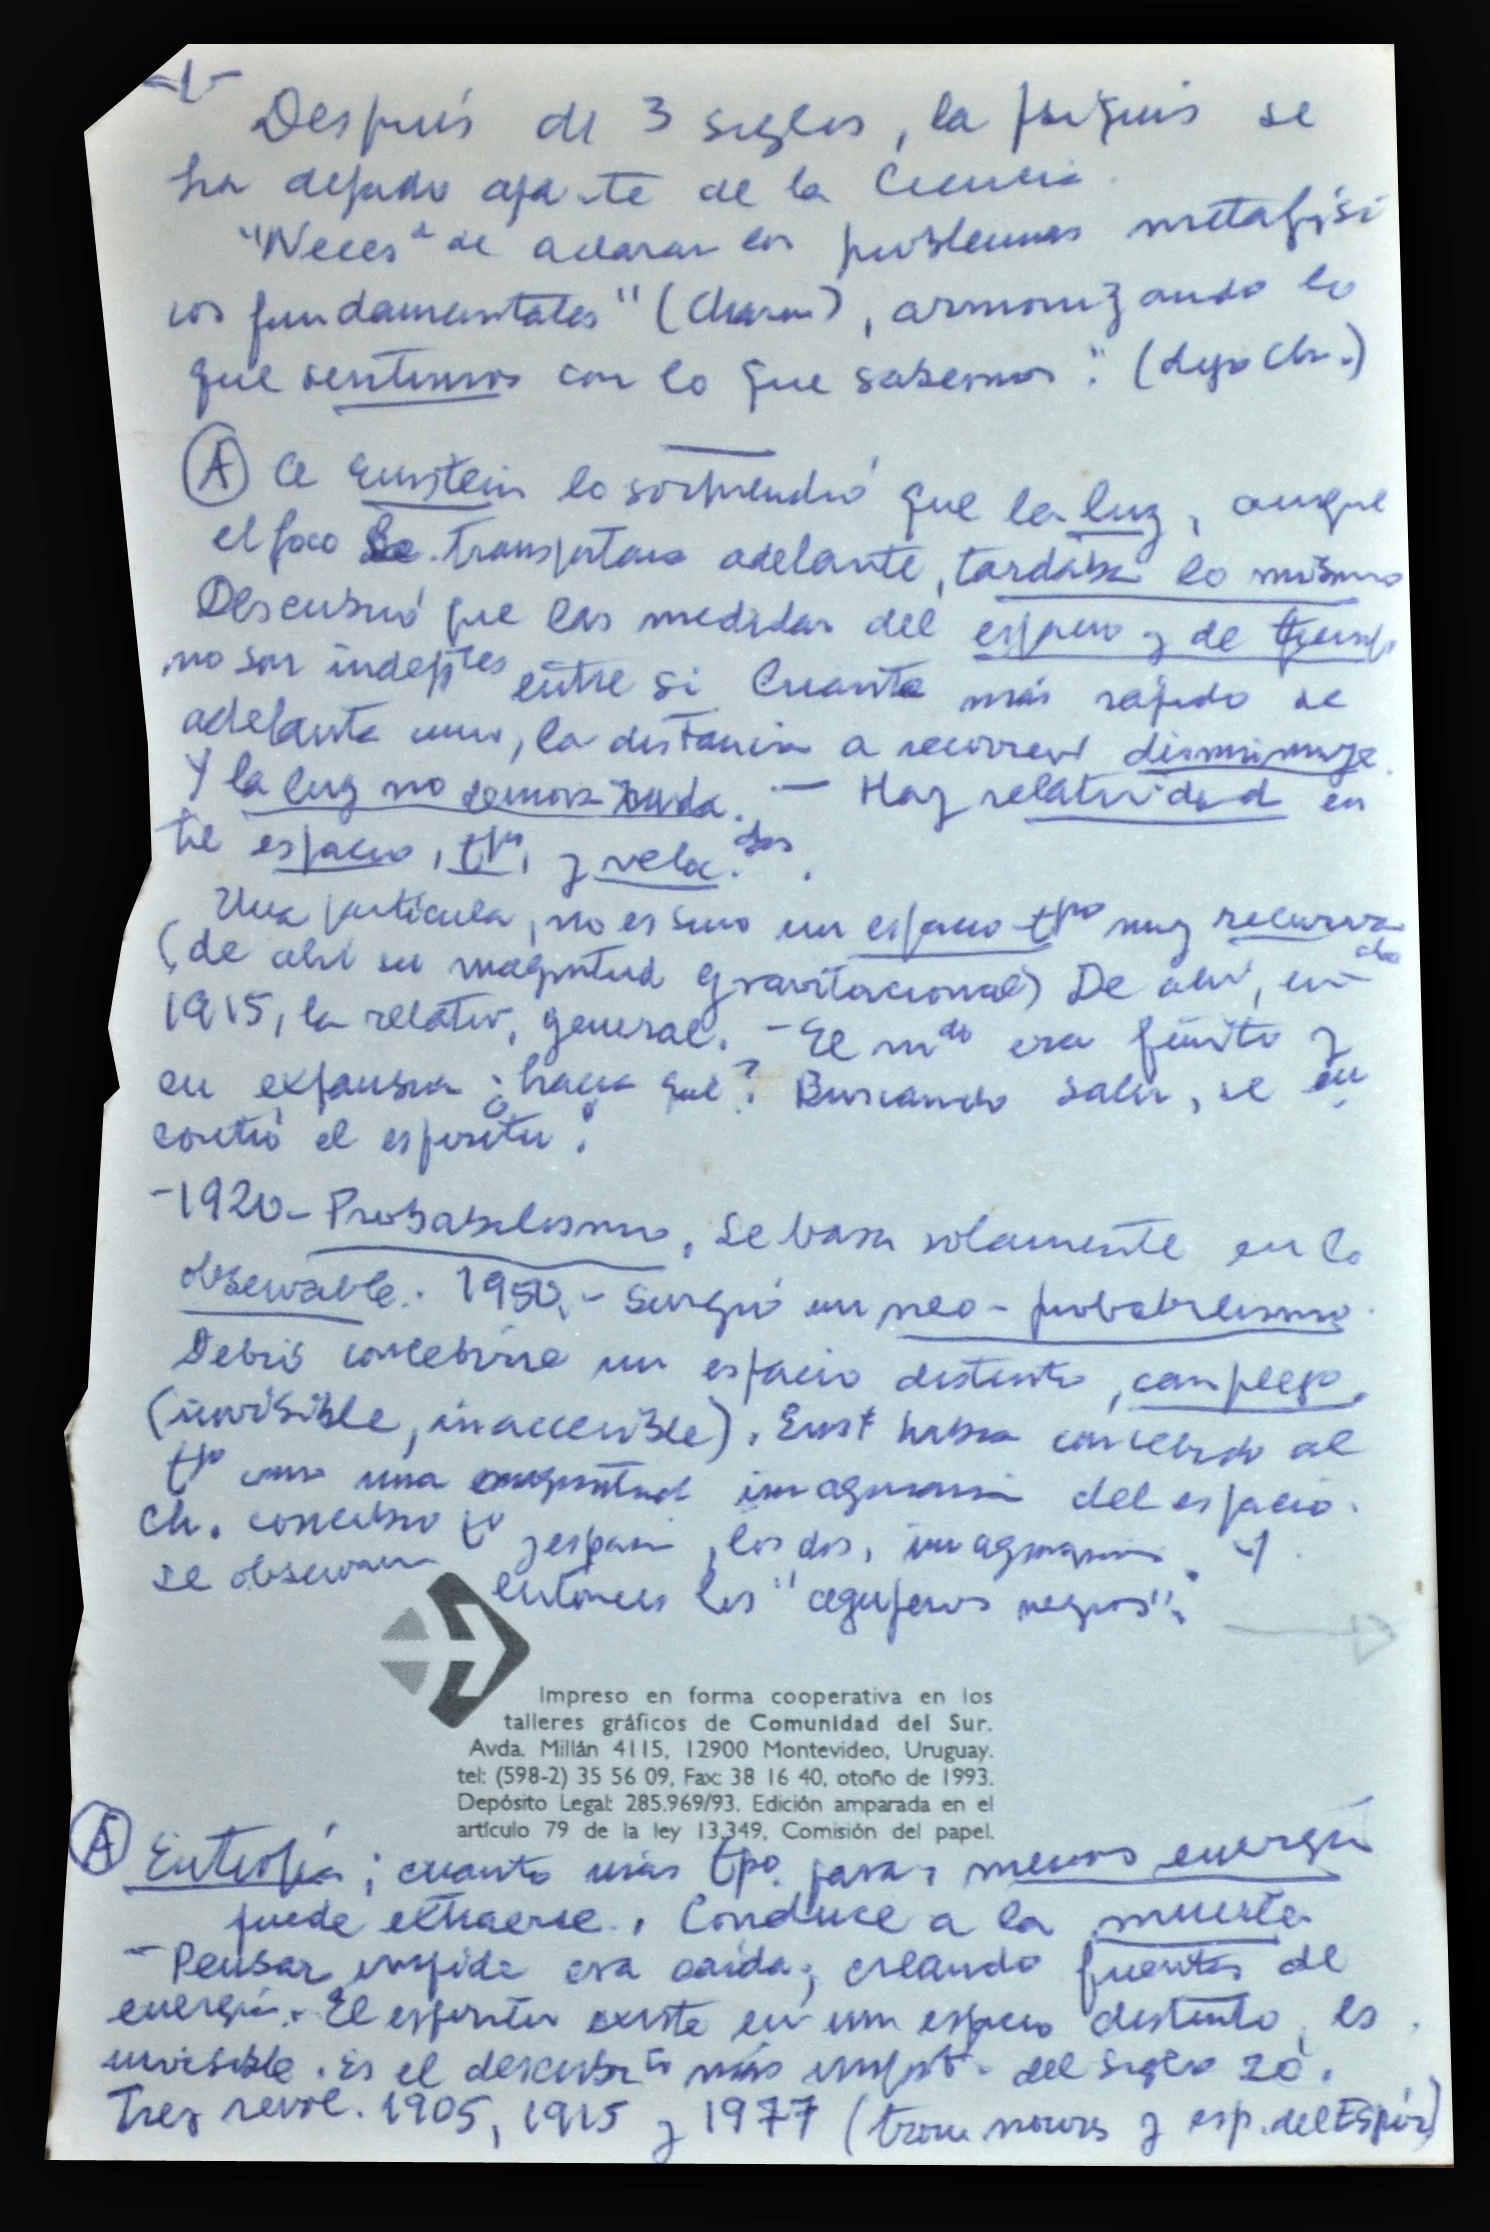 -1-
Después de 3 siglos, la psiquis se
ha dejado aparte de la Ciencia.
"Neces.d de aclarar los problemas metafísi
cos fundamentales" (Charon), armonizando lo
que sentimos con lo que sabemos". (dijo Ch.)
(A) A Einstein lo sorprendió que la luz, aunque
el foco se transportara adelante, tardaba lo mismo
Descubrió que las medidas del espacio y de tiempo
no son indeptes entre si Cuanto más rápido se
adelanta uno, la distancia a recorrer disminuye.
Y la luz no demora nada. - Hay relatividad en
tre espacio, tpo, y veloc.des.
Una partícula, no es sino un espacio tpo muy recurva
do
(de ahí su magnitud gravitacional) De ahí, en
1915, la relativ. general. - El mdo era finito y
en expansión ¿hacia qué? Buscando salir, se en
contró el espíritu!
-1920- Probabilismo. Se basa solamente en lo
observable. 1950.- Surgió un neo-probabilismo.
Debió concebirse un espacio distinto, complejo,
(invisible, inaccesible). Einst había concebido al
tpo como una magnitud imaginaria del espacio.
Ch. concibió tpo y espacio, los dos, imaginarios. Y
se observaron entonces los "agujeros negros".
Impreso en forma cooperativa en los
talleres gráficos de Comunidad del Sur.
Avda. Millán 4115, 12900 Montevideo, Uruguay.
tel: (598-2) 35 56 09, Fax: 38 16 40, otoño de 1993.
Depósito Legal: 285.969/93. Edición amparada en el
artículo 79 de la ley 13.349, Comisión del papel.
(A) Entropía; cuanto más tpo. pasa, menos energía
puede extraerse. Conduce a la muerte
- Pensar impide esa caída; creando fuentes de
energía. El espíritu existe en un espacio distinto, es
invisible. Es el descubrto más import. del Siglo 20.
Tres revol. 1905, 1915 y 1977 (trou noirs y esp. del Espír)